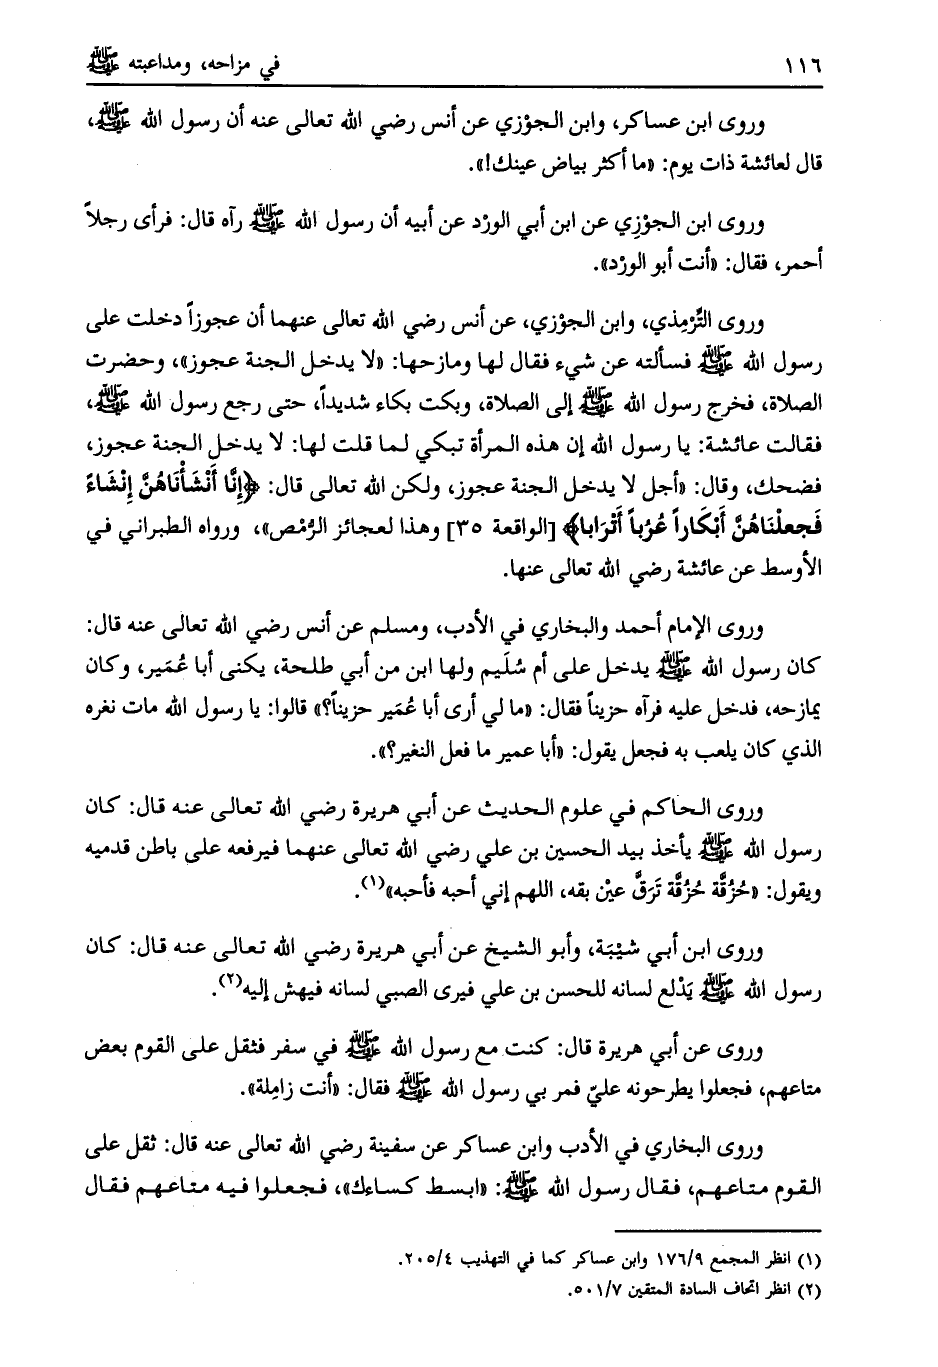 ١١٦ في مزاحه، ومداعبته ﷺ
وروى ابن عساكر، وابن الجوْزي عن أنس رضي الله تعالى عنه أن رسول الله ﷺ،
قال لعائشة ذات يوم: «ما أكثر بياض عينك!».
وروى ابن الجوْزِي عن ابن أبي الورْد عن أبيه أن رسول الله ﷺ رآه قال: فرأى رجلاً
أحمر، فقال: «أنت أبو الورْد».
وروى التِّرْمِذي، وابن الجوْزي، عن أنس رضي الله تعالى عنهما أن عجوزاً دخلت على
رسول الله ﷺ فسألته عن شيء فقال لها ومازحها: «لا يدخل الجنة عجوز»، وحضرت
الصلاة، فخرج رسول الله ﷺ إلى الصلاة، وبكت بكاء شديداً، حتى رجع رسول الله ﷺ،
فقالت عائشة: يا رسول الله إن هذه المرأة تبكي لما قلت لها: لا يدخل الجنة عجوز،
فضحك، وقال: «أجل لا يدخل الجنة عجوز، ولكن الله تعالى قال: ﴿إِنَّا أَنْشَأْنَاهُنَّ إِنْشَاءً
فَجعلْنَاهُنَّ أَبْكَاراً عُرُباً أَتْرَابا﴾ [الواقعة ٣٥] وهذا لعجائز الرُّمْص»، ورواه الطبراني في
الأوسط عن عائشة رضي الله تعالى عنها.
وروى الإمام أحمد والبخاري في الأدب، ومسلم عن أنس رضي الله تعالى عنه قال:
كان رسول الله ﷺ يدخل على أم سُلَيم ولها ابن من أبي طلحة، يكنى أبا عُمَير، وكان
يمازحه، فدخل عليه فرآه حزيناً فقال: «ما لي أرى أبا عُمَير حزيناً؟» قالوا: يا رسول الله مات نغره
الذي كان يلعب به فجعل يقول: «أبا عمير ما فعل النغير؟».
وروى الحاكم في علوم الحديث عن أبي هريرة رضي الله تعالى عنه قال: كان
رسول الله ﷺ يأخذ بيد الحسين بن علي رضي الله تعالى عنهما فيرفعه على باطن قدميه
ويقول: «حُزُقَّة حُزُقَّة تَرَقَّ عيْن بقه، اللهم إني أحبه فأحبه»(١).
وروى ابن أبي شيْبَة، وأبو الشيخ عن أبي هريرة رضي الله تعالى عنه قال: كان
رسول الله ﷺ يَدْلع لسانه للحسن بن علي فيرى الصبي لسانه فيهش إليه(٢).
وروى عن أبي هريرة قال: كنت مع رسول الله ﷺ في سفر فثقل على القوم بعض
متاعهم، فجعلوا يطرحونه عليّ فمر بي رسول الله ﷺ فقال: «أنت زامِلة».
وروى البخاري في الأدب وابن عساكر عن سفينة رضي الله تعالى عنه قال: ثقل على
القوم متاعهم، فقال رسول الله ﷺ: «ابسط كساءك»، فجعلوا فيه متاعهم فقال
(١) انظر المجمع ١٧٦/٩ وابن عساكر كما في التهذيب ٢٠٥/٤.
(٢) انظر اتحاف السادة المتقين ٥٠١/٧.